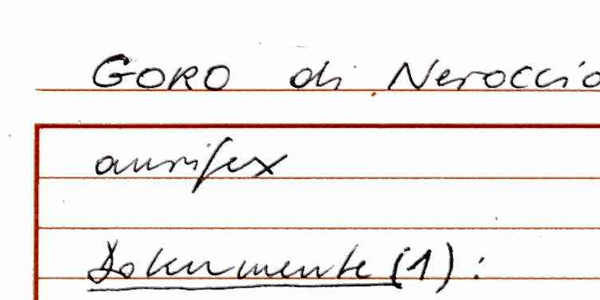 GORO di Neroccio
aurifex
Dokumente (1):